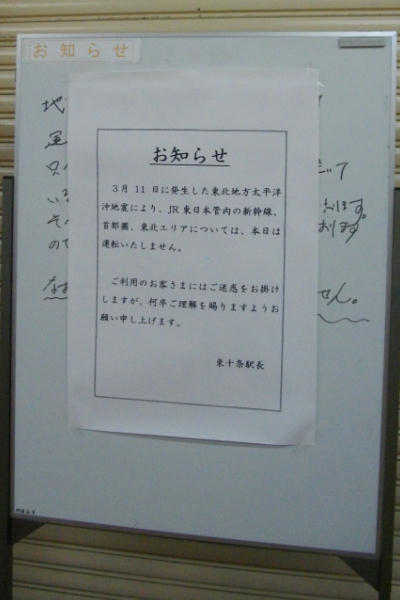 お知らせ
お知らせ
３月 11 日に発生した東北地方太平洋
沖地震により、JR 東日本管内の新幹線、
首都圏、東北エリアについては、本日は
運転いたしません。
ご利用のお客さまにはご迷惑をお掛け
しますが、何卒ご理解を賜りますようお
願い申し上げます。
東十条駅長